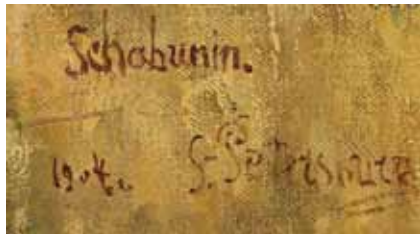 Schabunin.
1904. S. Petersburg